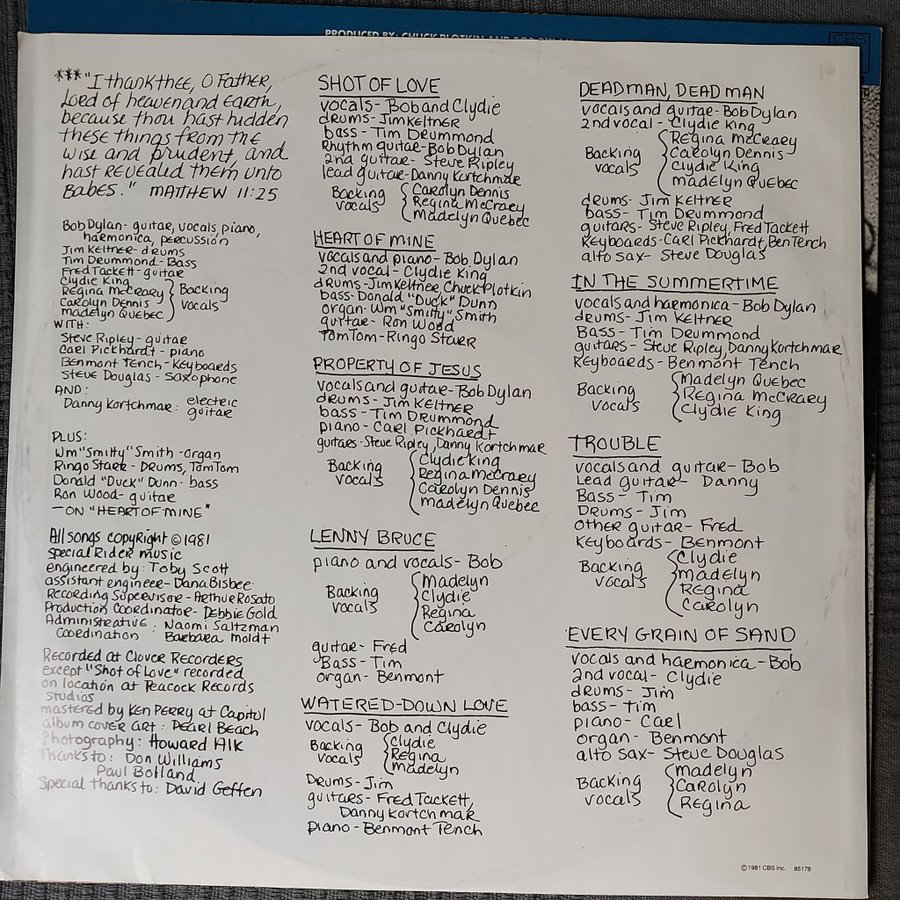 PRODUCED BY: CHUCK PLOTKIN AND BOB DYLAN
CBS
***"I thank thee, O Father,
Lord of heaven and earth,
because thou hast hidden
these things from the
wise and prudent, and
hast revealed them unto
babes." MATTHEW 11:25
Bob Dylan- guitar, vocals, piano,
harmonica, percussion
Jim Keltner- drums
Tim Drummond- Bass
Fred Tackett- guitar
Clydie King
Regina McCrary
Carolyn Dennis
Madelyn Quebec
Backing
vocals
WITH:
Steve Ripley- guitar
Carl Pickhardt- piano
Benmont Tench- Keyboards
Steve Douglas- Saxophone
AND:
Danny Kortchmar: electric
guitar
PLUS:
Wm "Smitty" Smith -organ
Ringo Starr- Drums, TomTom
Donald "Duck" Dunn- bass
Ron Wood- guitar
—ON "HEART OF MINE"
All songs copyright ©1981
Special Rider music
engineered by: Toby Scott
assistant engineer- Dana Bisbee
Recording Supervisor- Arthur Rosato
Production Coordinator- Debbie Gold
Administrative : Naomi Saltzman
Coordination Barbara Moldt
Recorded at Clover Recorders
except "Shot of Love" recorded
on location at Peacock Records
Studios
mastered by Ken Perry at Capitol
album cover art: Pearl Beach
Photography: Howard Alk
Thanks to: Don Williams
Paul Bolland
Special thanks to: David Geffen
SHOT OF LOVE
vocals- Bob and Clydie
drums- Jim Keltner
bass- Tim Drummond
Rhythm guitar- Bob Dylan
2nd guitar- Steve Ripley
lead guitar- Danny Kortchmar
Backing
vocals
Carolyn Dennis
Regina McCrary
Madelyn Quebec
HEART OF MINE
vocals and piano- Bob Dylan
2nd vocal- Clydie King
drums- Jim Keltner, Chuck Plotkin
bass- Donald "Duck" Dunn
organ- Wm "Smitty" Smith
guitar- Ron Wood
TomTom- Ringo Starr
PROPERTY OF JESUS
vocals and guitar- Bob Dylan
drums- Jim Keltner
bass- Tim Drummond
piano- Carl Pickhardt
guitars- Steve Ripley, Danny Kortchmar
Backing
vocals
Clydie King
Regina McCrary
Carolyn Dennis
Madelyn Quebec
LENNY BRUCE
piano and vocals- Bob
Backing
vocals
Madelyn
Clydie
Regina
Carolyn
guitar- Fred
Bass- Tim
organ- Benmont
WATERED-DOWN LOVE
vocals- Bob and Clydie
Backing
vocals
Clydie
Regina
Madelyn
Drums- Jim
guitars- Fred Tackett,
Danny Kortchmar
piano- Benmont Tench
DEAD MAN, DEAD MAN
vocals and guitar- Bob Dylan
2nd vocal- Clydie King
Backing
vocals
Regina McCrary
Carolyn Dennis
Clydie King
Madelyn Quebec
drums- Jim Keltner
bass- Tim Drummond
guitars- Steve Ripley, Fred Tackett
Keyboards- Carl Pickhardt, Ben Tench
alto sax- Steve Douglas
IN THE SUMMERTIME
vocals and harmonica- Bob Dylan
drums- Jim Keltner
Bass- Tim Drummond
guitars- Steve Ripley, Danny Kortchmar
Keyboards- Benmont Tench
Backing
vocals
Madelyn Quebec
Regina McCrary
Clydie King
TROUBLE
vocals and guitar- Bob
Lead guitar- Danny
Bass- Tim
Drums- Jim
other guitar- Fred
Keyboards- Benmont
Backing
vocals
Clydie
Madelyn
Regina
Carolyn
EVERY GRAIN OF SAND
vocals and harmonica- Bob
2nd vocal- Clydie
drums- Jim
bass- Tim
piano- Carl
organ- Benmont
alto sax- Steve Douglas
Backing
vocals
Madelyn
Carolyn
Regina
©1981 CBS Inc. 85178